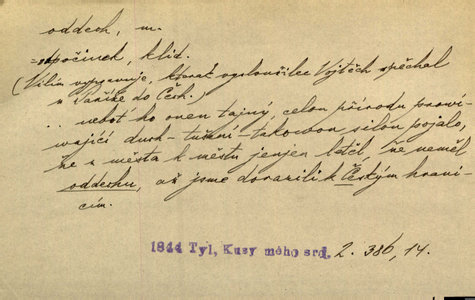 oddech, m.
= odpočinek, klid.
(Vilím vypravuje, kterak vysloužilec Vojtěch spěchal
z Paříže do Čech.)
.. neboť ho onen tajný, celou přírodu proni-
kající duch - tušení - takovou silou pojalo,
že z města k městu jenjen letěl, že neměl
oddechu, až jsme dorazili k Českým hrani-
cím.
1844 Tyl, Kusy mého srdc. 2. 386, 14.